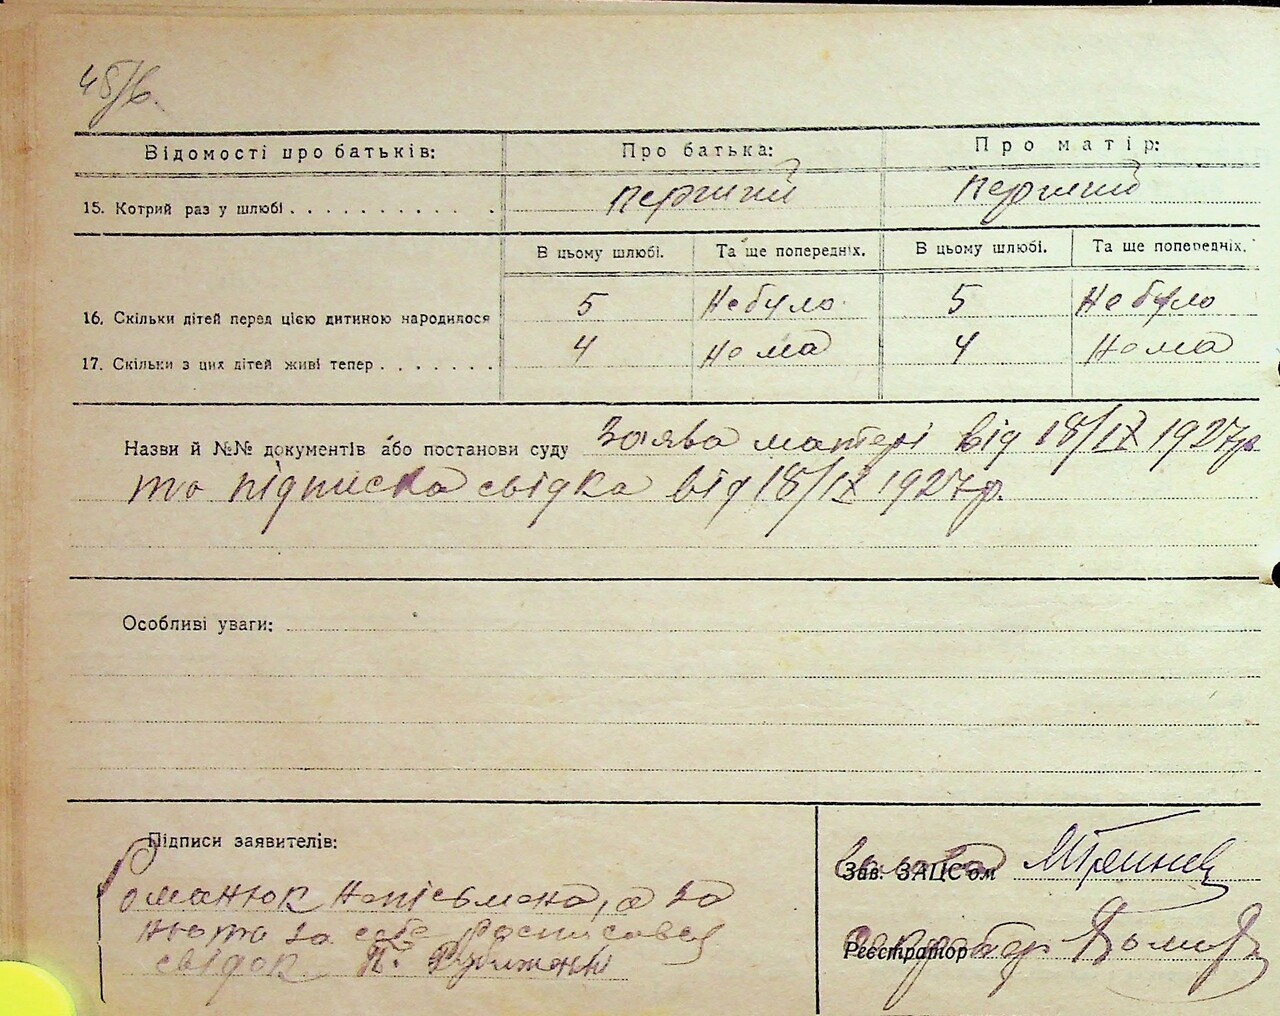 48/б.
Відомості про батьків: Про батька: Про матір:
15. Котрий раз у шлюбі . . . . . . . . . . . . перший перший
В цьому шлюбі. Та ще попередніх. В цьому шлюбі. Та ще попередніх.
16. Скільки дітей перед цією дитиною народилося 5 Небуло 5 Небуло
17. Скільки з цих дітей живі тепер . . . . . . . 4 Нема 4 Нема
Назви й №№ документів або постанови суду Заява матері від 18/IX 1927р.
та підписка свідка від 18/IX 1927р.
Особливі уваги:
Підписи заявителів:
Романюк неписьмена, а за
нью та за себе росписався
свідок П.
Зав. ЗАЦС'ом
Голова
Реєстратор
Секретар